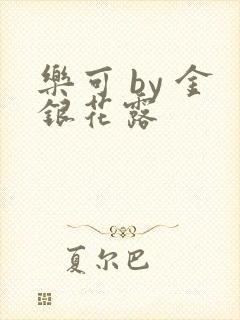 樂可 by 金
銀花露
夏尔巴